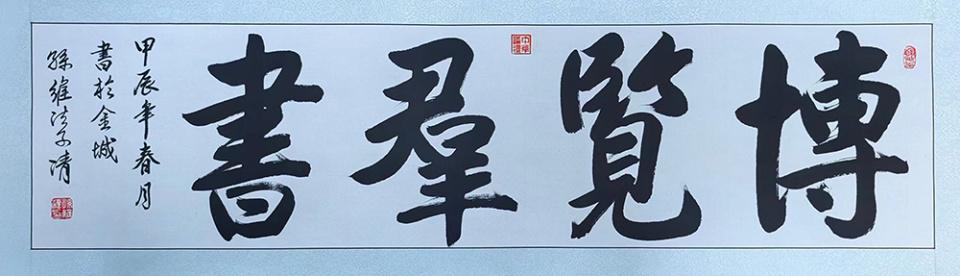 博覽羣書
甲辰年春月
書於金城
孫維法子清